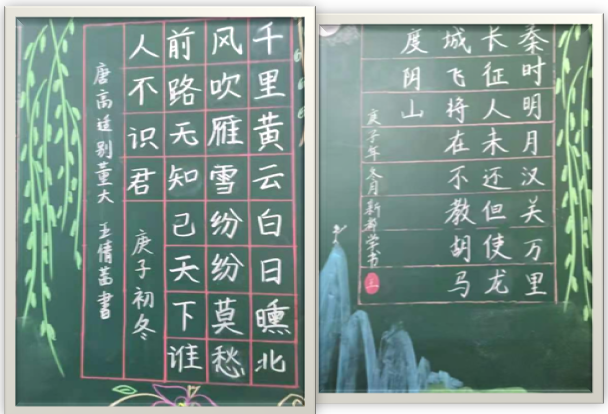 千里黄云白日曛北
风吹雁雪纷纷莫愁
前路无知己天下谁
人不识君
庚子初冬
唐高适别董大 王倩書
秦时明月汉关万里
长征人未还但使龙
城飞将在不教胡马
度阴山
庚子年冬月新学书